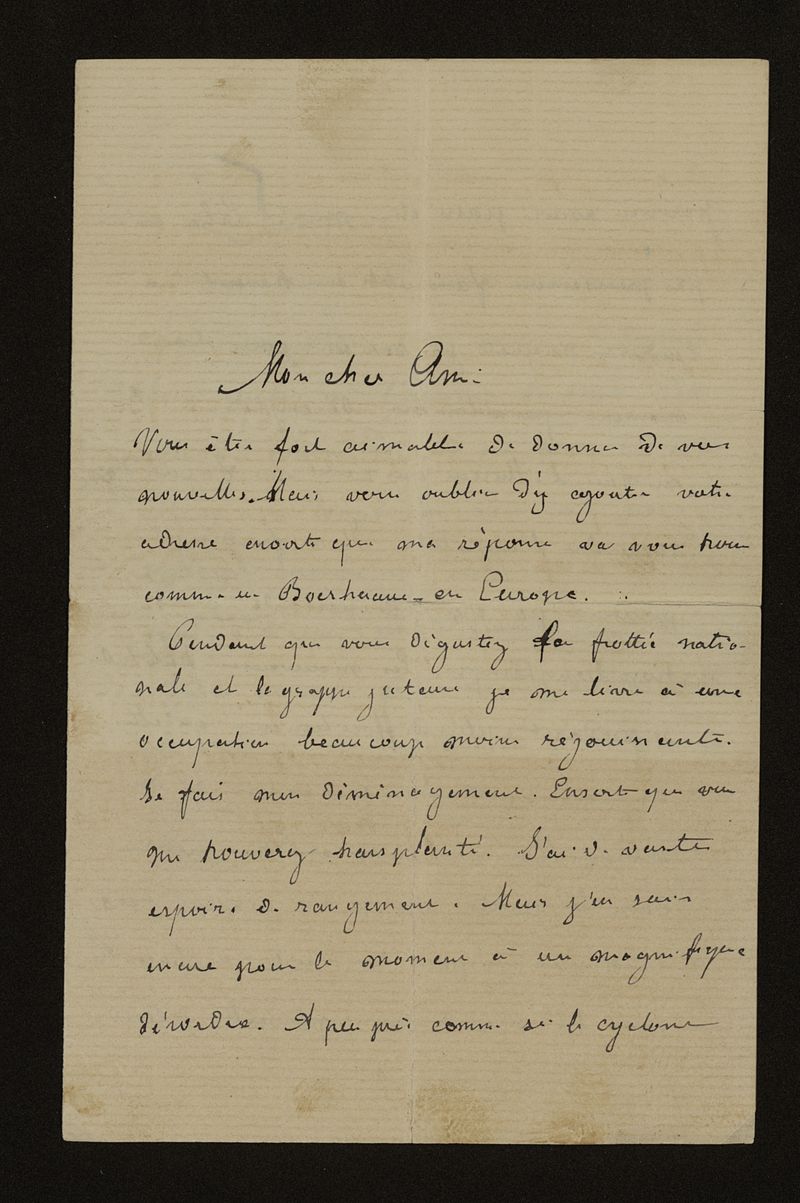 Mon cher Ami
Vous êtes fort aimable de donner de vos
nouvelles. Mais vous oubliez d'y ajouter votre
adresse ensorte que ma réponse va vous trouver
comme un Boerhaave - en Europe.
Pendant que vous dégustez la frottée natio-
nale et la grappe juteuse je me livre à une
occupation beaucoup moins réjouissante.
Je fais mon déménagement. Ensorte que vous
me trouverez transplanté. J'ai de vastes
espoirs de rangement. Mais j'en suis
encore pour le moment à un magnifique
désordre. A peu près comme si le cyclone